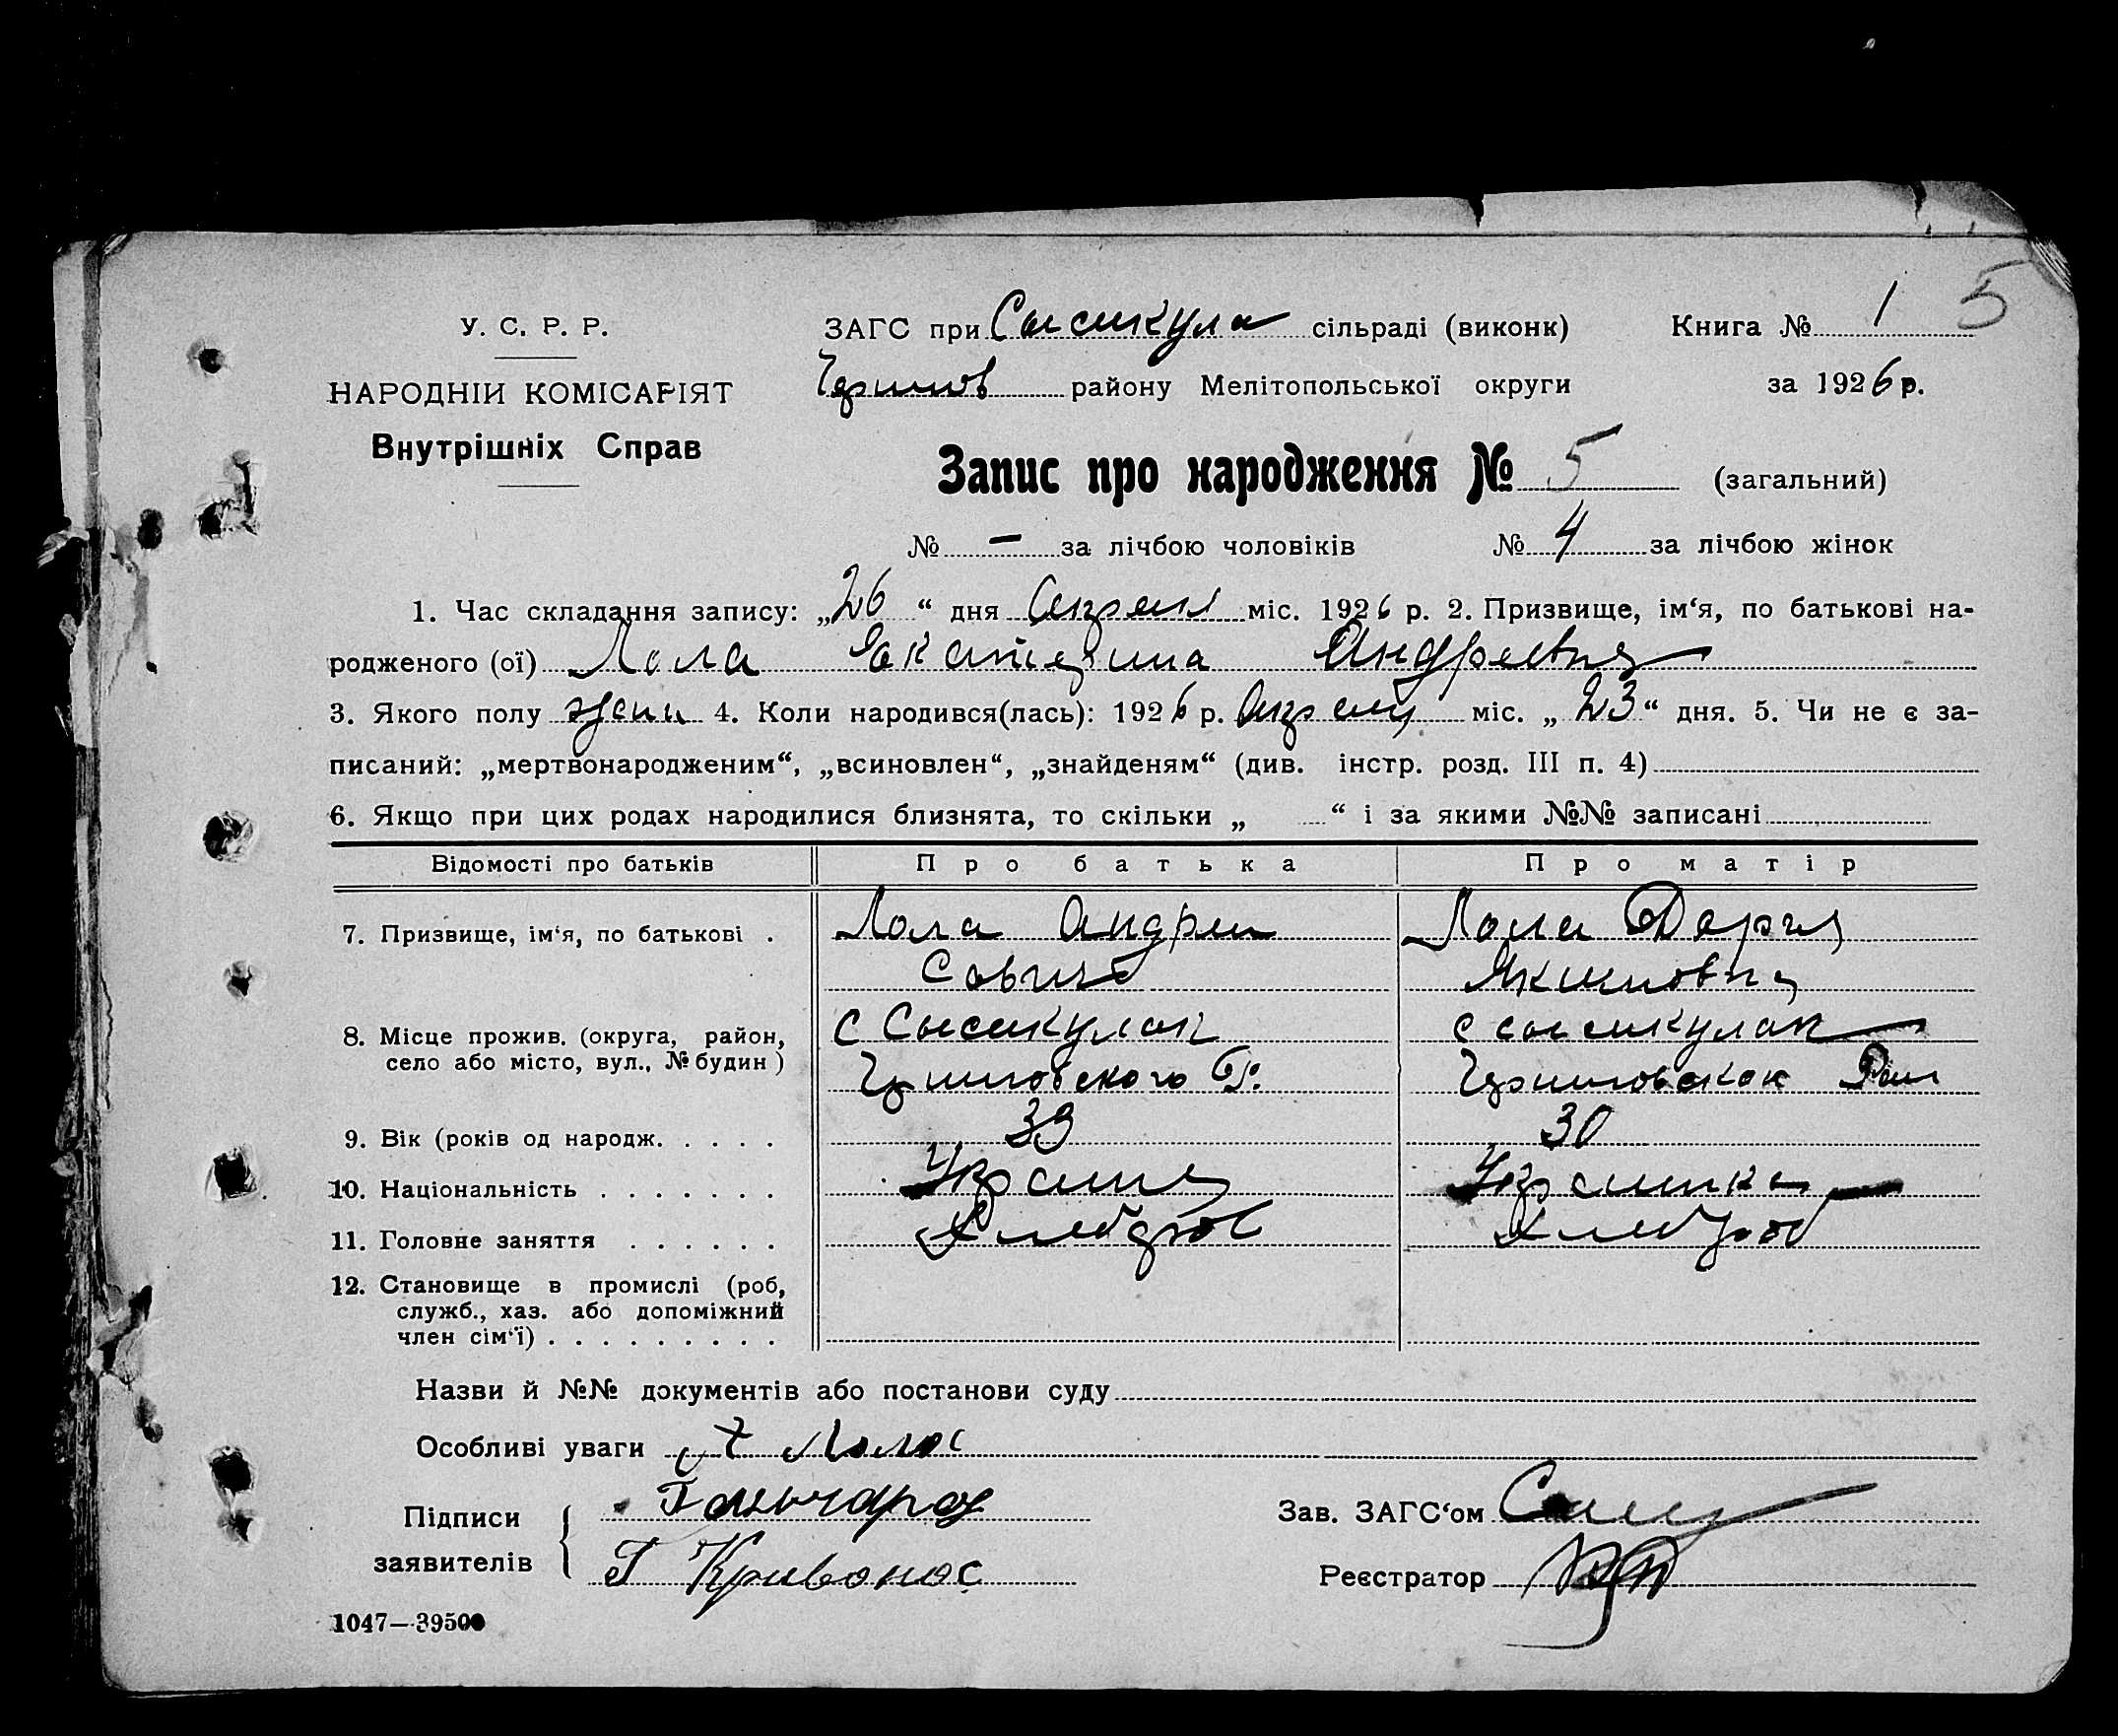 5
У. С. Р. Р.
ЗАГС при Сысикула сільраді (виконк) Книга № 1
НАРОДНІЙ КОМІСАРІЯТ
району Мелітопольської округи за 1926 р.
Внутрішніх Справ
Запис про народження № 5 (загальний)
№ — за лічбою чоловіків № 4 за лічбою жінок
1. Час складання запису: „26“ дня Апреля міс. 1926 р. 2. Призвище, ім‘я, по батькові на-
родженого (ої) Лола Екатерина Андреевна
3. Якого полу жен 4. Коли народився(лась): 1926 р. Апреля міс. „23“ дня. 5. Чи не є за-
писаний: „мертвонародженим“, „всиновлен“, „знайденям“ (див. інстр. розд. III п. 4)
6. Якщо при цих родах народилися близнята, то скільки „ “ і за якими №№ записані
Відомості про батьків Про батька Про матір
7. Призвище, ім‘я, по батькові . Лола Андреи Лола Дария
Савичь Якимовна
8. Місце прожив. (округа, район, с Сысикулак с сысикулак
село або місто, вул., № будин)
9. Вік (років од народж. . . . . 39 30
10. Національність . . . . . . . Украинец Украинка
11. Головне заняття . . . . . . Хлебороб Хлебороб
12. Становище в промислі (роб,
служб., хаз. або допоміжний
член сім‘ї) . . . . . . . . .
Назви й №№ документів або постанови суду
Особливі уваги
Підписи Гончаров Зав. ЗАГС‘ом
заявителів Г Кривонос Реєстратор
1047—39500